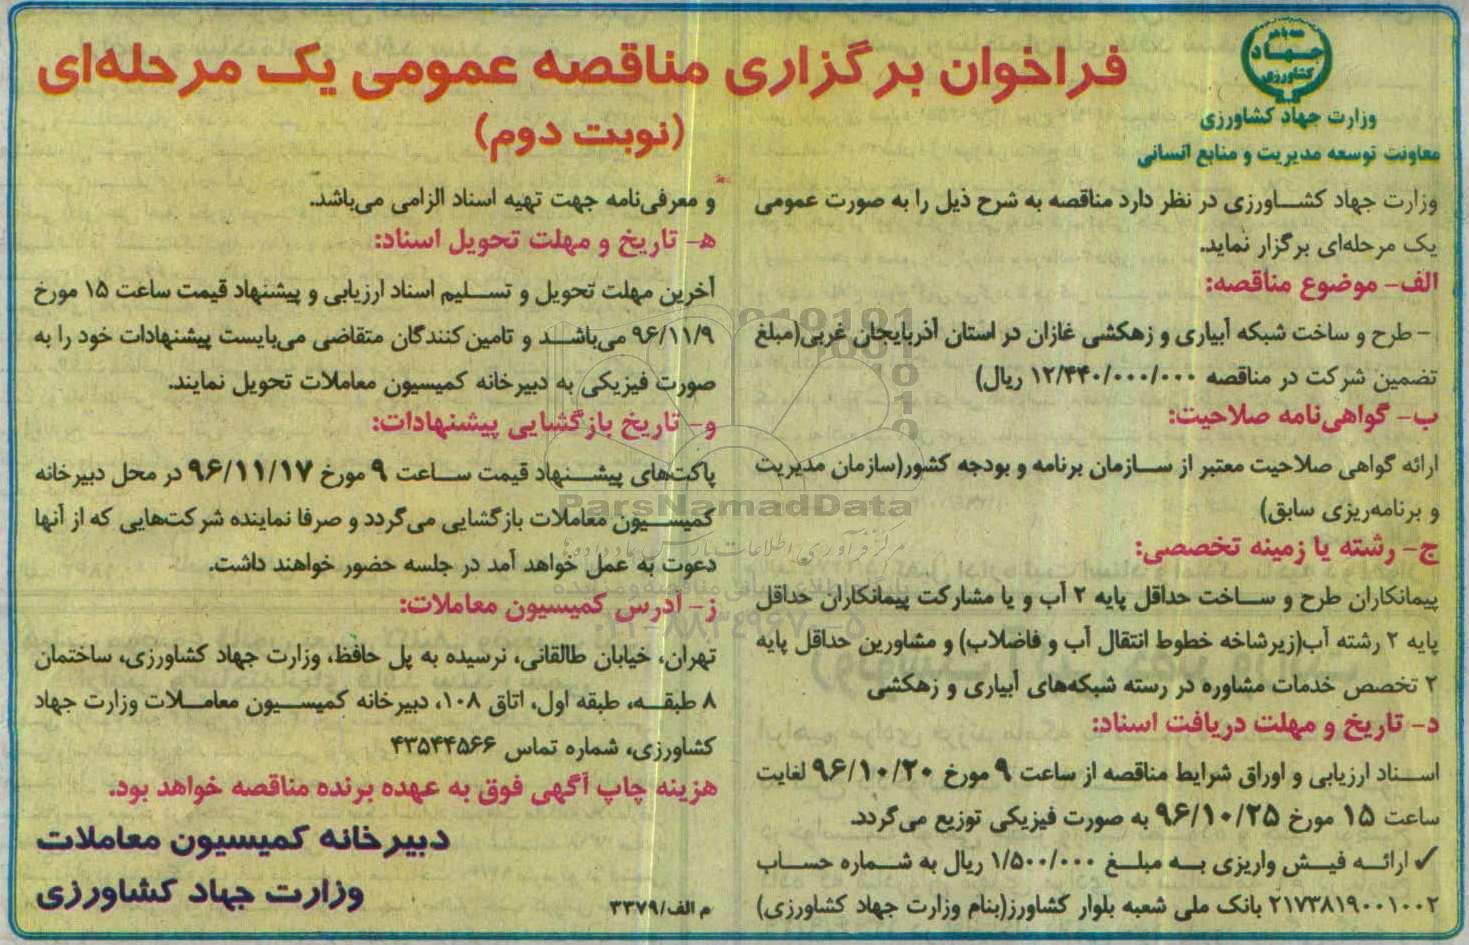 همه با هم
جهاد
کشاورزی
وزارت جهاد کشاورزی
معاونت توسعه مدیریت و منابع انسانی
فراخوان برگزاری مناقصه عمومی یک مرحله‌ای
(نوبت دوم)
وزارت جهاد کشــاورزی در نظر دارد مناقصه به شرح ذیل را به صورت عمومی
یک مرحله‌ای برگزار نماید.
الف- موضوع مناقصه:
- طرح و ساخت شبکه آبیاری و زهکشی غازان در استان آذربایجان غربی(مبلغ
تضمین شرکت در مناقصه ۱۲/۴۴۰/۰۰۰/۰۰۰ ریال)
ب- گواهی‌نامه صلاحیت:
ارائه گواهی صلاحیت معتبر از ســازمان برنامه و بودجه کشور(سازمان مدیریت
و برنامه‌ریزی سابق)
ج- رشته یا زمینه تخصصی:
پیمانکاران طرح و ســاخت حداقل پایه ۲ آب و یا مشارکت پیمانکاران حداقل
پایه ۲ رشته آب(زیرشاخه خطوط انتقال آب و فاضلاب) و مشاورین حداقل پایه
۲ تخصص خدمات مشاوره در رسته شبکه‌های آبیاری و زهکشی
د- تاریخ و مهلت دریافت اسناد:
اســناد ارزیابی و اوراق شرایط مناقصه از ساعت ۹ مورخ ۹۶/۱۰/۲۰ لغایت
ساعت ۱۵ مورخ ۹۶/۱۰/۲۵ به صورت فیزیکی توزیع می‌گردد.
✓ ارائــه فیــش واریزی بــه مبلــغ ۱/۵۰۰/۰۰۰ ریال به شــماره حســاب
۲۱۷۳۸۱۹۰۰۱۰۰۲ بانک ملی شعبه بلوار کشاورز(بنام وزارت جهاد کشاورزی)
و معرفی‌نامه جهت تهیه اسناد الزامی می‌باشد.
ه- تاریخ و مهلت تحویل اسناد:
آخرین مهلت تحویل و تســلیم اسناد ارزیابی و پیشنهاد قیمت ساعت ۱۵ مورخ
۹۶/۱۱/۹ می‌باشــد و تامین‌کنندگان متقاضی می‌بایست پیشنهادات خود را به
صورت فیزیکی به دبیرخانه کمیسیون معاملات تحویل نمایند.
و- تاریخ بازگشایی پیشنهادات:
پاکت‌های پیشــنهاد قیمت ســاعت ۹ مورخ ۹۶/۱۱/۱۷ در محل دبیرخانه
کمیســیون معاملات بازگشایی می‌گردد و صرفا نماینده شرکت‌هایی که از آنها
دعوت به عمل خواهد آمد در جلسه حضور خواهند داشت.
ز- آدرس کمیسیون معاملات:
تهران، خیابان طالقانی، نرسیده به پل حافظ، وزارت جهاد کشاورزی، ساختمان
۸ طبقــه، طبقه اول، اتاق ۱۰۸، دبیرخانه کمیســیون معامــلات وزارت جهاد
کشاورزی، شماره تماس ۴۳۵۴۴۵۶۶
هزینه چاپ آگهی فوق به عهده برنده مناقصه خواهد بود.
دبیرخانه کمیسیون معاملات
وزارت جهاد کشاورزی
م الف/۳۳۷۹
ParsNamadData